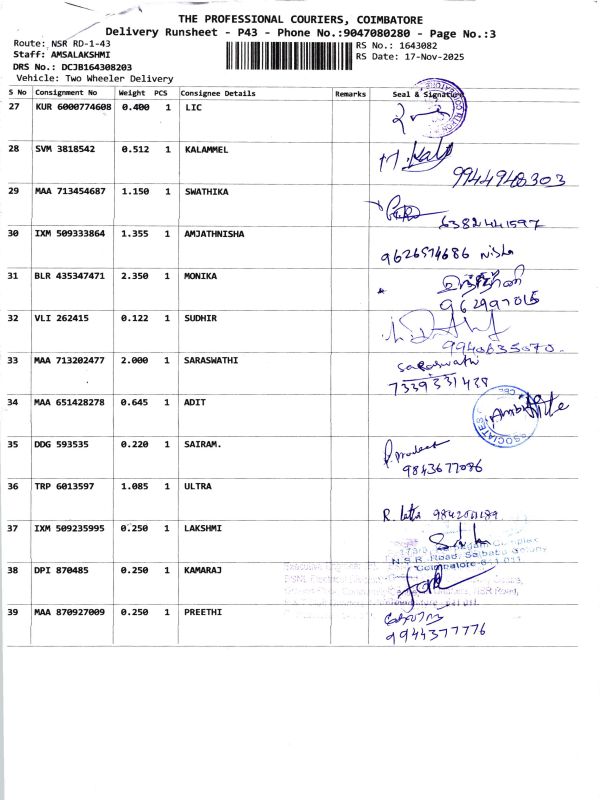 THE PROFESSIONAL COURIERS, COIMBATORE
Delivery Runsheet - P43 - Phone No.:9047080280 - Page No.:3
Route: NSR RD-1-43
RS No.: 1643082
Staff: AMSALAKSHMI
RS Date: 17-Nov-2025
DRS No.: DCJB164308203
Vehicle: Two Wheeler Delivery
S No Consignment No Weight PCS Consignee Details Remarks Seal & Signature
27 KUR 6000774608 0.400 1 LIC
28 SVM 3818542 0.512 1 KALAMMEL
9944948303
29 MAA 713454687 1.150 1 SWATHIKA
6382441597
30 IXM 509333864 1.355 1 AMJATHNISHA
9626574686 Nisha
31 BLR 435347471 2.350 1 MONIKA
962997015
32 VLI 262415 0.122 1 SUDHIR
9940635070.
33 MAA 713202477 2.000 1 SARASWATHI
Saraswathi
7339331428
34 MAA 651428278 0.645 1 ADIT
35 DDG 593535 0.220 1 SAIRAM.
9843677086
36 TRP 6013597 1.085 1 ULTRA
R. latta
37 IXM 509235995 0.250 1 LAKSHMI
N.S.R. Road, Saibaba Colony
Coimbatore-641 011
38 DPI 870485 0.250 1 KAMARAJ
39 MAA 870927009 0.250 1 PREETHI
9944377776